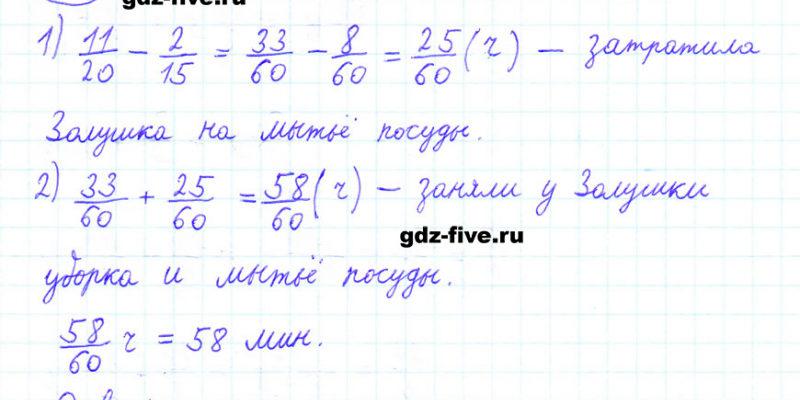 gdz-five.ru
1) 11/20 - 2/15 = 33/60 - 8/60 = 25/60 (ч) - затратила
Золушка на мытьё посуды.
2) 33/60 + 25/60 = 58/60 (ч) - заняли у Золушки
gdz-five.ru
уборка и мытьё посуды.
58/60 ч = 58 мин.